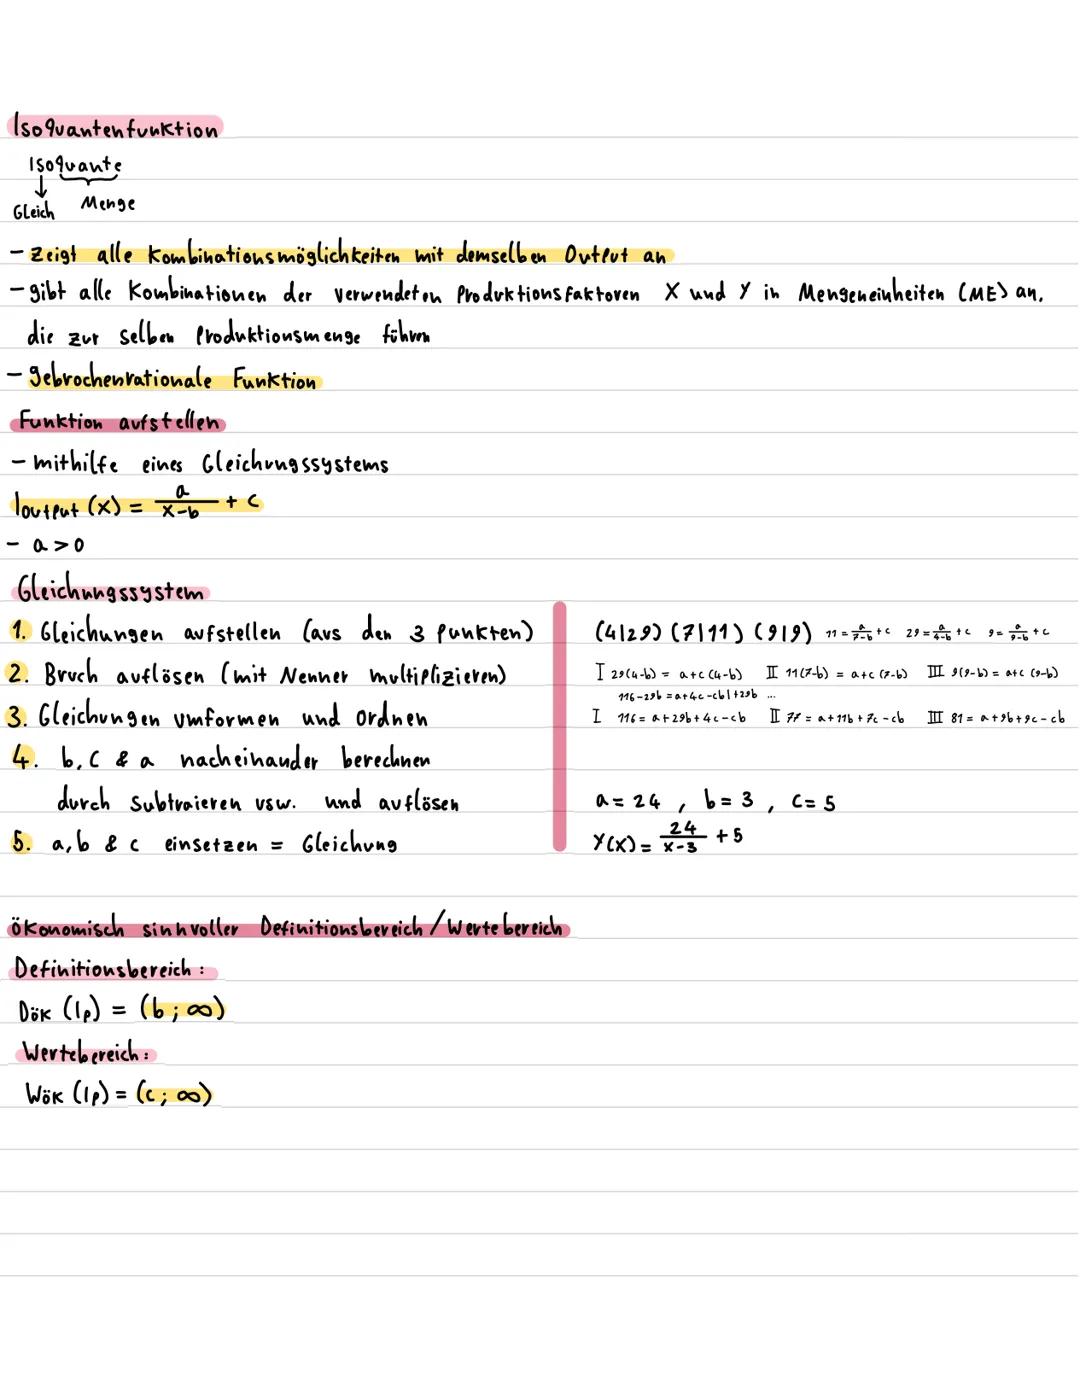 Isoquantenfunktion
Isoquante
Gleich Menge
- zeigt alle Kombinationsmöglichkeiten mit demselben Output an
- gibt alle Kombinationen der verwendeten Produktionsfaktoren X und Y in Mengeneinheiten (ME) an,
die zur selben Produktionsmenge führen
- gebrochenrationale Funktion
Funktion aufstellen
- mithilfe eines Gleichungssystems
Ioutput (x) = a/(x-b) + c
- a > 0
Gleichungssystem
1. Gleichungen aufstellen (aus den 3 Punkten)
(4|29) (7|11) (9|9) 11 = a/(7-b) + c 29 = a/(4-b) + c 9 = a/(9-b) + c
2. Bruch auflösen (mit Nenner multiplizieren)
I 29(4-b) = a+c (4-b) II 11(7-b) = a+c (7-b) III 9(9-b) = a+c (9-b)
116-29b = a+4c-cb | +29b ...
3. Gleichungen umformen und ordnen
I 116 = a+29b+4c-cb II 77 = a+11b+7c-cb III 81 = a+9b+9c-cb
4. b, c & a nacheinander berechnen
durch Subtraieren usw. und auflösen
a = 24 , b = 3 , c = 5
5. a, b & c einsetzen = Gleichung
Y(x) = 24/(x-3) + 5
ökonomisch sinnvoller Definitionsbereich / Wertebereich
Definitionsbereich:
Dök (Ip) = (b; ∞)
Wertebereich:
Wök (Ip) = (c; ∞)